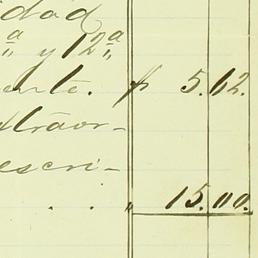 idad
ª y 12ª
ente. $ 5.62.
xtraor-
escri-
. . „ 15.00.